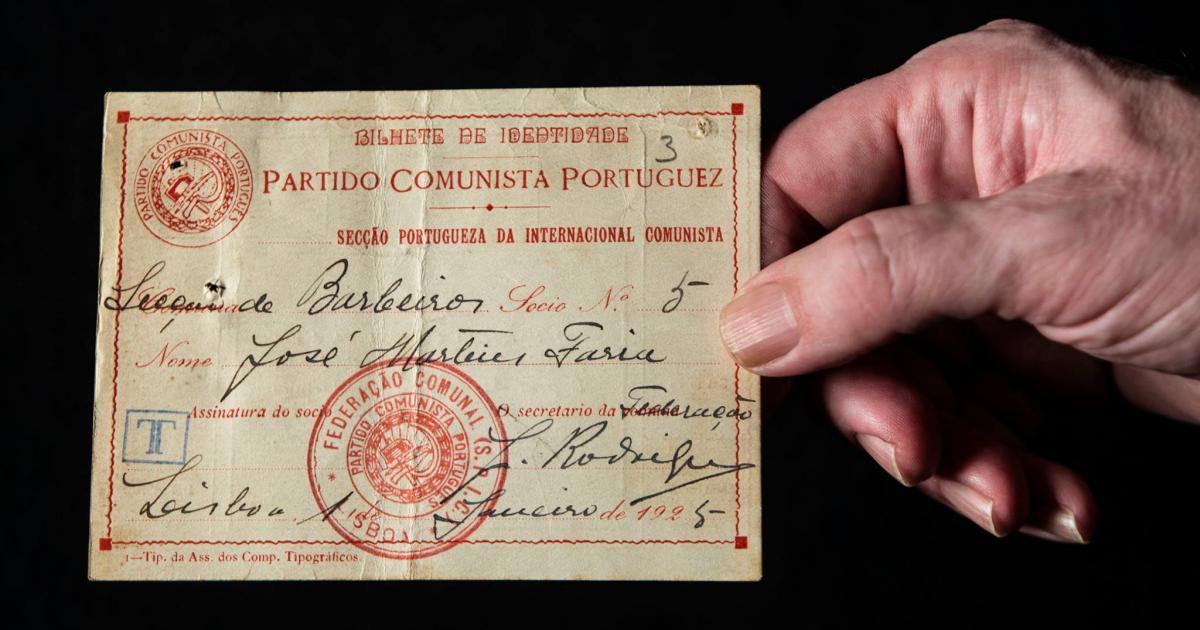 BILHETE DE IDENTIDADE
3
PARTIDO COMUNISTA PORTUGUEZ
SECÇÃO PORTUGUEZA DA INTERNACIONAL COMUNISTA
PARTIDO COMUNISTA PORTUGUÊS
de Barbeiros Socio N.º 5
Nome José Martins Faria
Assinatura do socio O secretario da Federação
T
J. Rodrigues
Lisboa, 1 de Janeiro de 1925
FEDERAÇÃO COMUNAL (S.P.I.C.) LISBOA
PARTIDO COMUNISTA PORTUGUÊS
1—Tip. da Ass. dos Comp. Tipográficos.